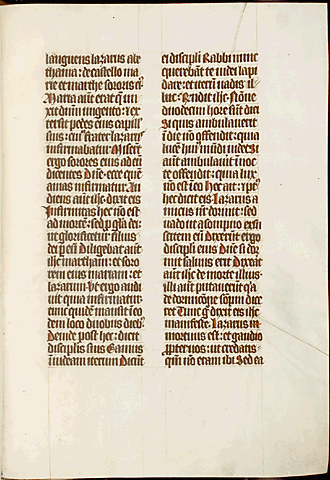 languens lazarus a be
thania: de castello ma
rie et marthe sororis ei᷒
Maria aut̄ erat q̄ un
xit dn̄m ungento: et ex
tersit pedes eius capill'
suis: cui᷒ frater lazar᷒
infirmabatur Miserūt
ergo sorores eius ad eū
dicentes Dn̄e ecce quē
amas infirmatur. Au
diens aut̄ ihc dixit eis
Infirmitas hec nō est
ad mortē: sed p̄ gl̄a dei
ut glorificetur filius
dei p̄ eū Diligebat aut̄
ihc martham: et soro
rem eius mariam: et
lazarum Vt ergo audi
uit quia infirmatur
tunc quidē mansit ī eo
dem loco duobus dieb᷒
Deinde post hec: dicit
discipulis suis Eamus
in iudeam iterum Dicūt
ei discipli Rabbi nunc
querebāt te iudei lapi
dare: et iterū uadis il
luc· R̄ndit ihc· Nōne
duodecim hore sūt diei
Si quis ambulauerit
ī die nō offendit: quia
lucē hui᷒ mūdi uidet Si
aut̄ ambulauerit ī noc
te offendit: quia lux
nō est ī eo Hec ait: ⁊ p᷒
hec dicit eis Lazarus a
micus n̄r dormit: sed
uado ut a sompno exsu
scitem eū Dixerūt ergo
discipuli eius Dn̄e si dor
mit saluus erit Dixerat
aut̄ ihc de morte illius·
illi aut̄ putauerūt q̄a
de dormicōne sōpni dice
ret Tunc g̊ dixit eis ihc
manifeste· Lazarus
mortuus est: et gaudio
p̄pter uos: ut credatis·
qm̄ nō eram ibi Sed ea